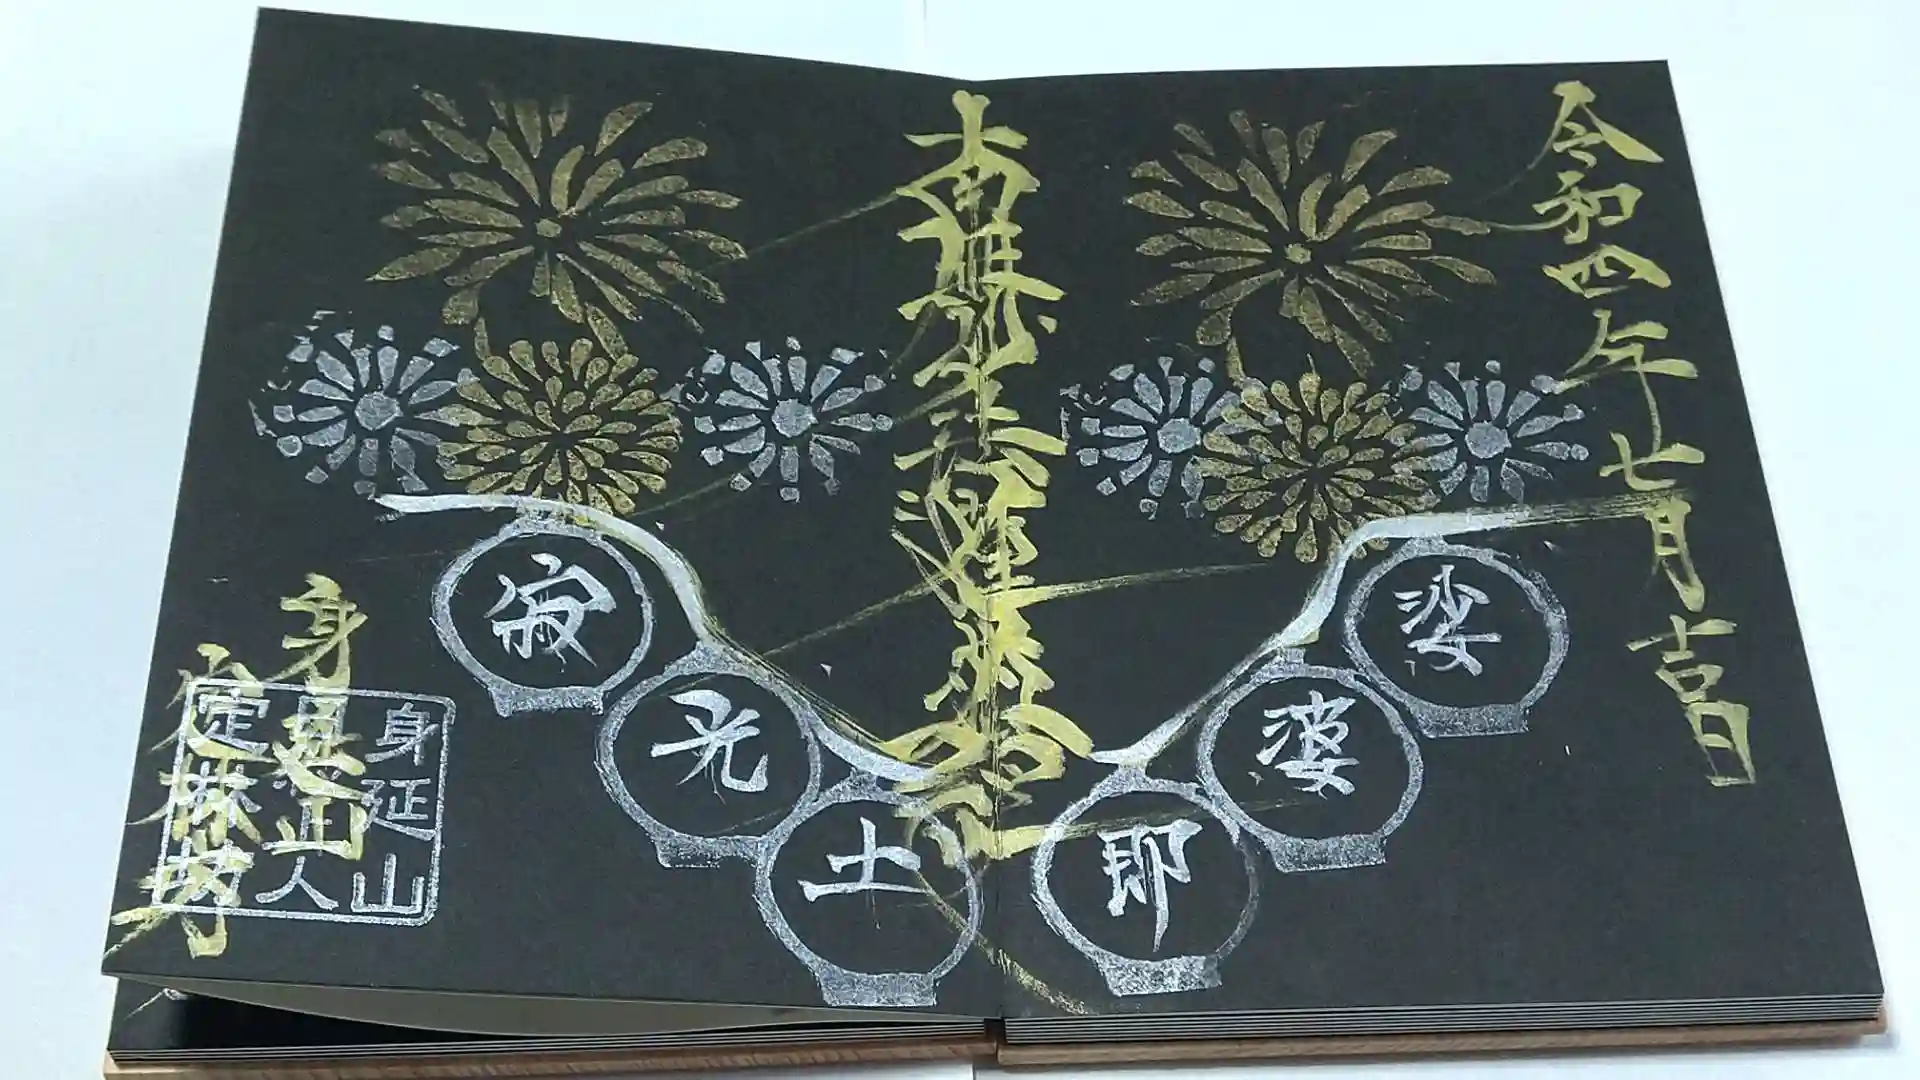 令和四年七月吉日
娑
婆
即
南無妙法蓮華経
寂
光
土
身延山
定林坊
身延山
定林坊